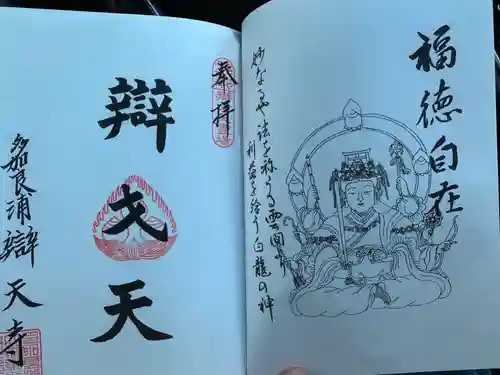 福徳自在
妙なるや法を称うる雲間より
利益を給う白龍の神
奉拝
辯才天
多嘉良浦辯天寺